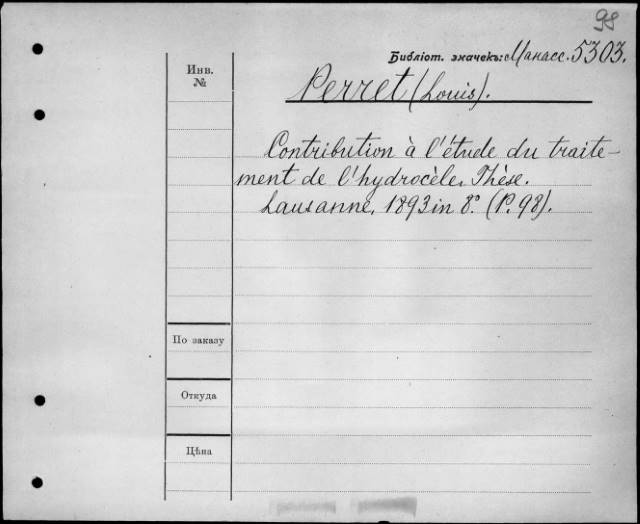 98
Библіот. значекъ: Манасс. 5303.
Инв.
№
Perret (Louis).
Contribution à l'étude du traite-
ment de l'hydrocèle. Thèse.
Lausanne, 1893 in 8º. (P. 98).
По заказу
Откуда
Цѣна